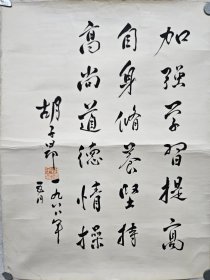 加强学习提高
自身脩养坚持
高尚道德情操
胡子昂
一九八八年
五月